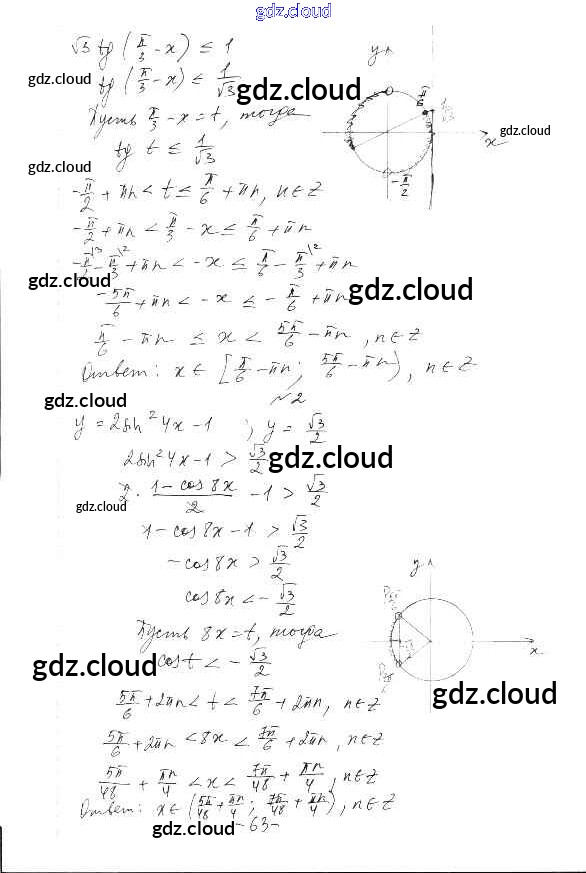 gdz.cloud
√3 tg (π/3 - x) ≤ 1
gdz.cloud
tg (π/3 - x) ≤ 1/√3
gdz.cloud
Пусть π/3 - x = t, тогда
y
π/6
1/√3
x
gdz.cloud
-π/2
tg t ≤ 1/√3
gdz.cloud
-π/2 + πn < t ≤ π/6 + πn, n∈Z
-π/2 + πn < π/3 - x ≤ π/6 + πn
-π/2\3 - π/3\2 + πn < -x ≤ π/6 - π/3\2 + πn
gdz.cloud
-5π/6 + πn < -x ≤ -π/6 + πn
gdz.cloud
π/6 - πn ≤ x < 5π/6 - πn, n∈Z
Ответ: x∈ [π/6 - πn; 5π/6 - πn), n∈Z
№2
gdz.cloud
y = 2sin²4x - 1 ; y = √3/2
2sin²4x - 1 > √3/2
gdz.cloud
2 · (1 - cos 8x)/2 - 1 > √3/2
gdz.cloud
1 - cos 8x - 1 > √3/2
-cos 8x > √3/2
cos 8x < -√3/2
y
x
Пусть 8x = t, тогда
gdz.cloud
cos t < -√3/2
gdz.cloud
5π/6 + 2πn < t < 7π/6 + 2πn, n∈Z
5π/6 + 2πn < 8x < 7π/6 + 2πn, n∈Z
5π/48 + πn/4 < x < 7π/48 + πn/4, n∈Z
Ответ: x∈ (5π/48 + πn/4; 7π/48 + πn/4), n∈Z
gdz.cloud
-63-